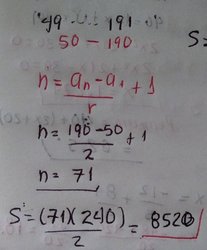 49 191
50 - 190
S=
n = an - a1 + 1
r
n = 190 - 50 + 1
2
n = 71
S = (71)(240) = 8520
2